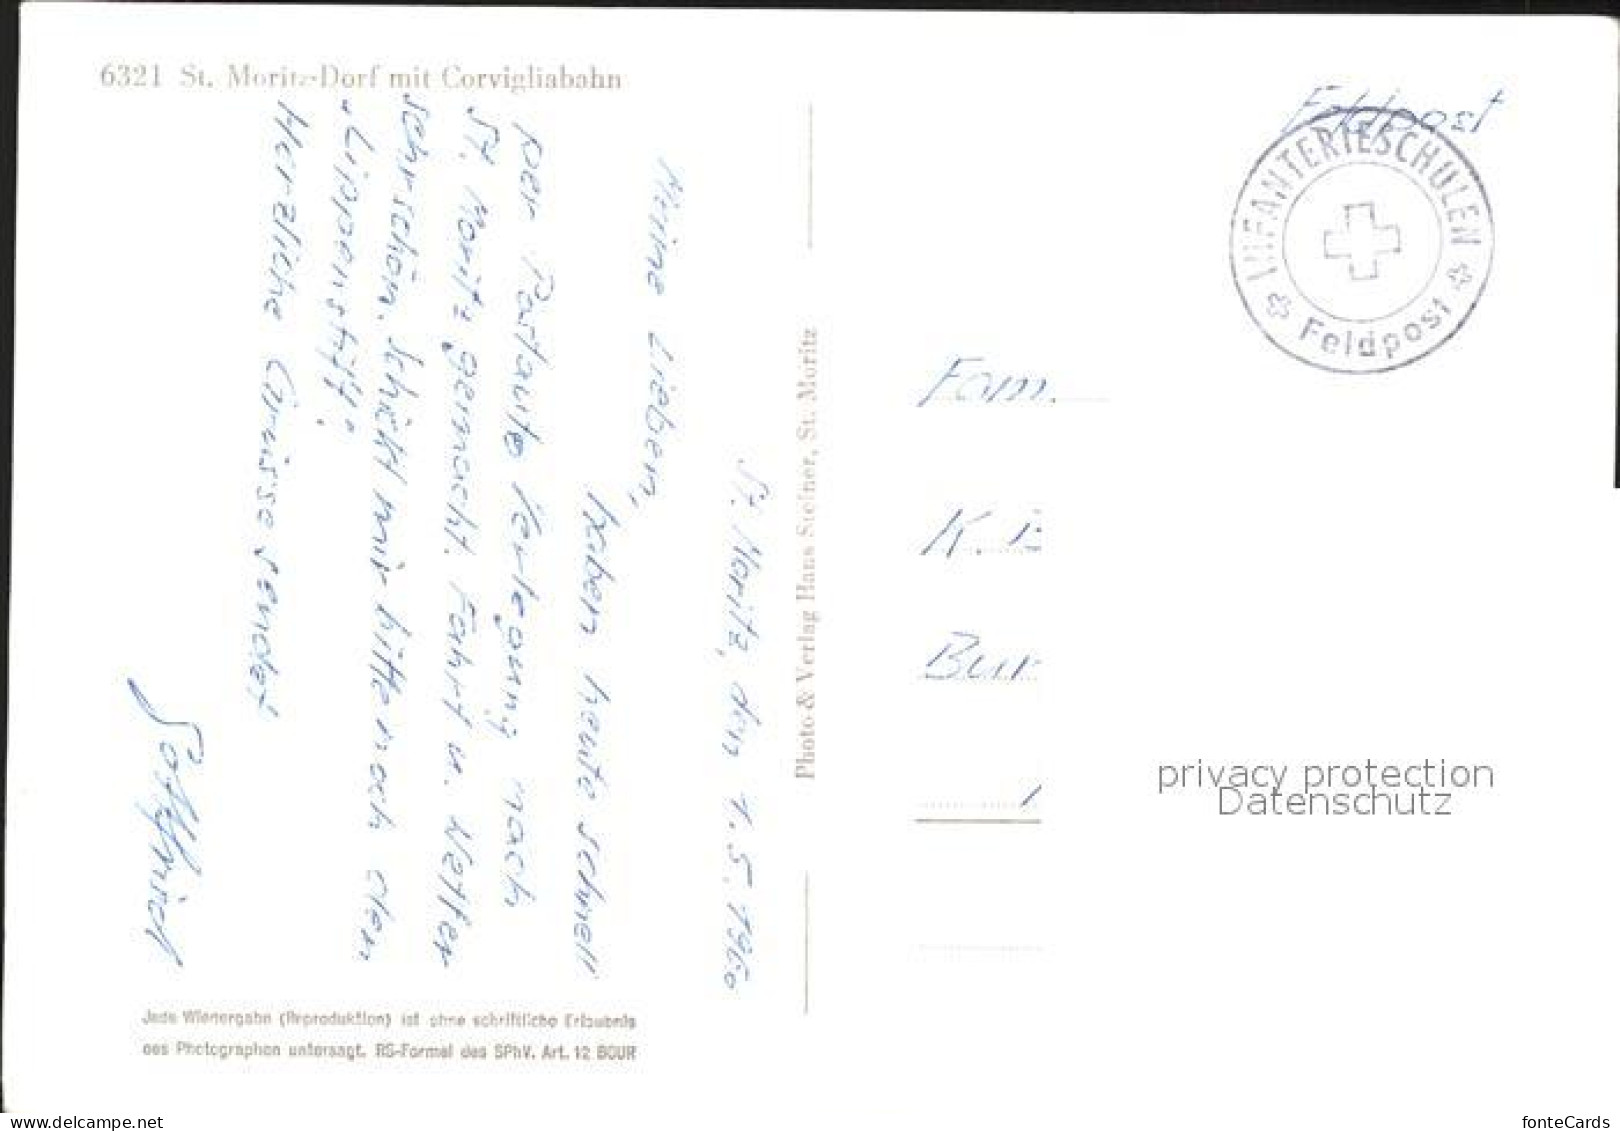 6321 St. Moritz-Dorf mit Corvigliabahn
St. Moritz, den 1.5.1960
Meine Lieben,
haben heute schnell
per Postauto Verlegung nach
St. Moritz gemacht. Fahrt u. Wetter
sehr schön. Schickt mir bitte noch den
"Lippenstift".
Herzliche Grüsse sendet
Photo & Verlag Hans Steiner, St. Moritz
Feldpost
INFANTERIESCHULEN
Feldpost
Fam.
K. B
Bur
Jede Wiedergabe (Reproduktion) ist ohne schriftliche Erlaubnis
des Photographen untersagt. RS-Formel des SPhV. Art. 12 BGUR
privacy protection
Datenschutz
delcampe.net
fonteCards